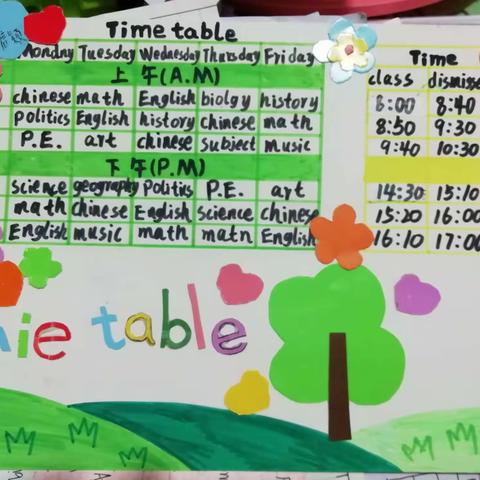 Time table
Monday Tuesday Wednesday Thursday Friday
上午(A.M)
chinese math English biolgy history
Politics English history chinese math
P.E. art chinese subject music
下午(P.M)
science geography Politics P.E. art
math chinese English science chinese
English music math matn English
Time
class dismisse
8:00 8:40
8:50 9:30
9:40 10:30
14:30 15:10
15:20 16:00
16:10 17:00
ie table